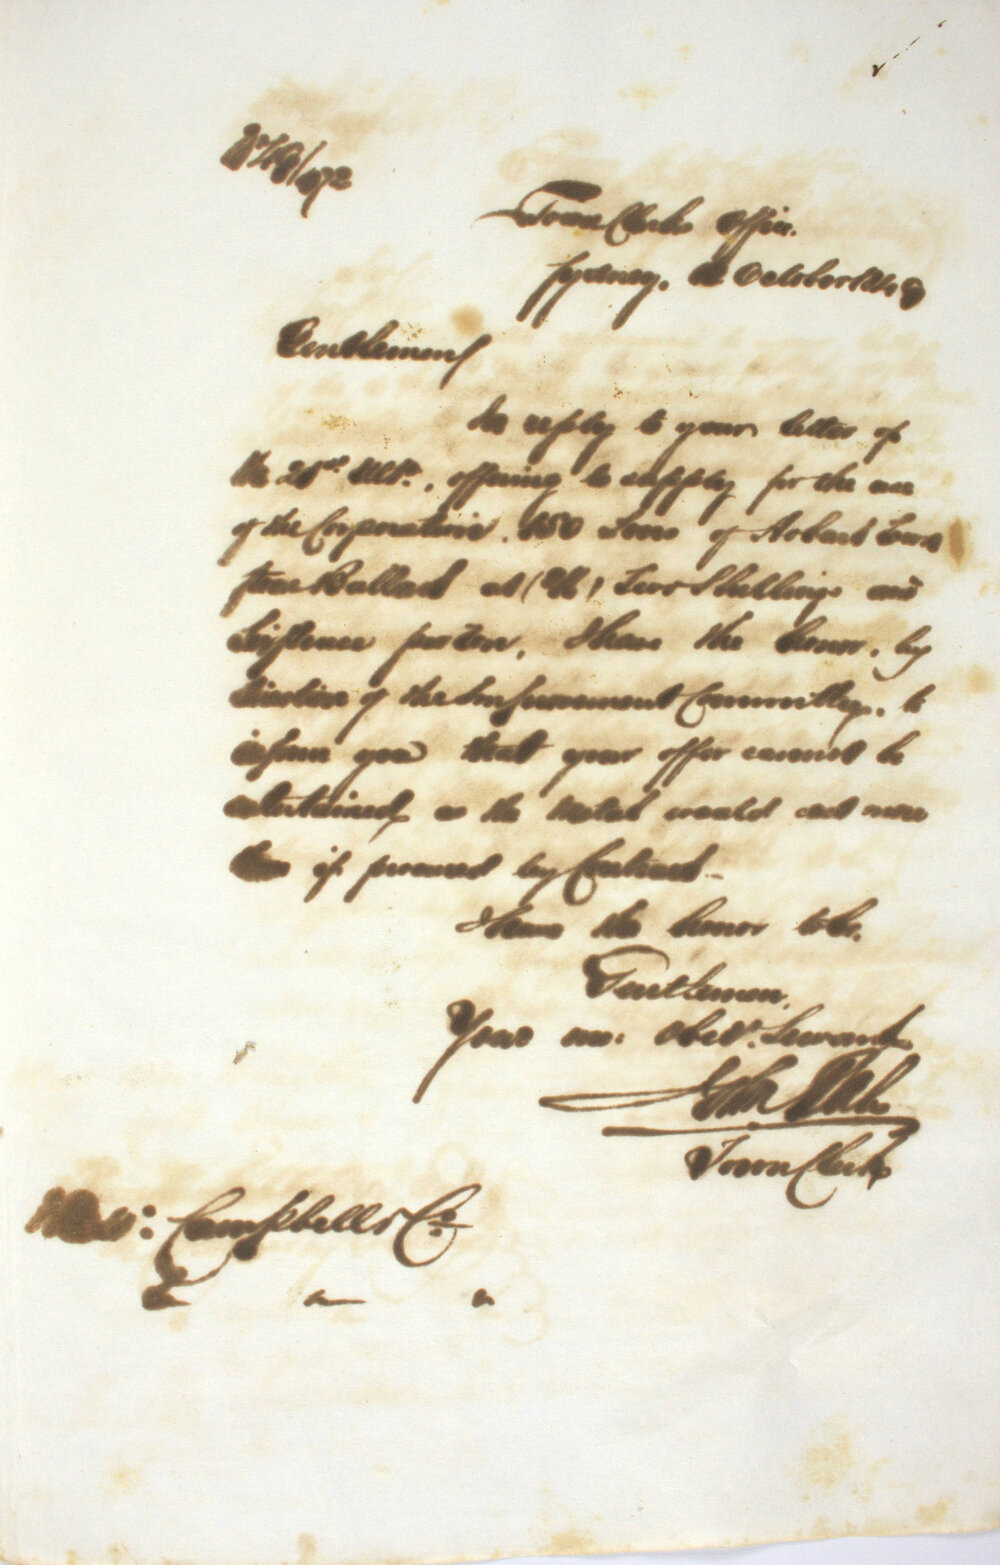 Town Clerks Office.
Sydney. October 184
Gentlemen
In reply to your letter of
the 28th Ulto., offering to supply for the use
of the Corporation. 150 Tons of Hobart Town
free Ballast at (2/6) Two Shillings and
Sixpence per ton, I have the honor, by
direction of the Improvement Committee, to
inform you that your offer cannot be
entertained, as the Metal would cost more
than if procured by Contract.-
I have the honor to be.
Gentlemen.
Your mo: Obedt. Servant
Town Clerk
Messrs: Campbell & Co.